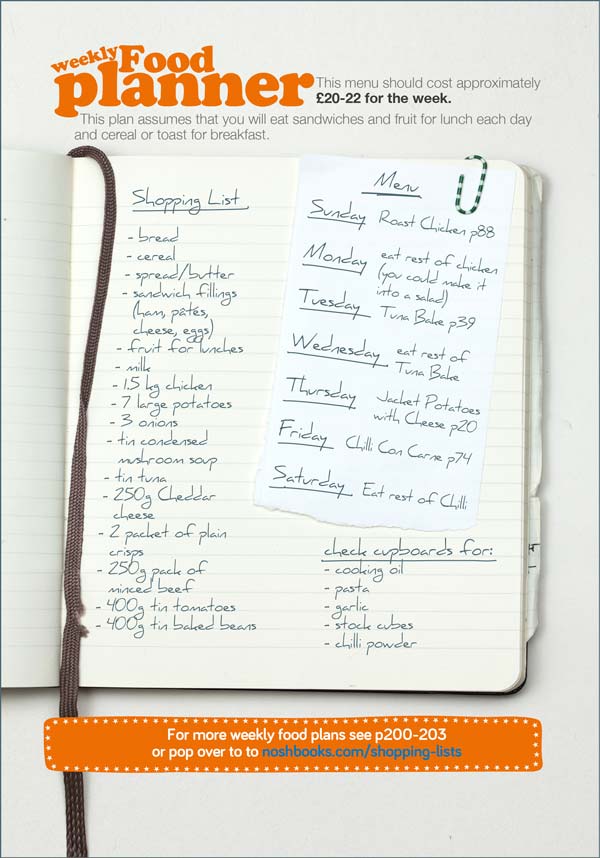 weekly Food
planner
This menu should cost approximately
£20-22 for the week.
This plan assumes that you will eat sandwiches and fruit for lunch each day
and cereal or toast for breakfast.
Shopping List
- bread
- cereal
- spread/butter
- sandwich fillings
(ham, pâtés,
cheese, eggs)
- fruit for lunches
- milk
- 1.5 kg chicken
- 7 large potatoes
- 3 onions
- tin condensed
mushroom soup
- tin tuna
- 250g Cheddar
cheese
- 2 packet of plain
crisps
- 250g pack of
minced beef
- 400g tin tomatoes
- 400g tin baked beans
Menu
Sunday Roast Chicken p88
Monday eat rest of chicken
(you could make it
into a salad)
Tuesday Tuna Bake p39
Wednesday eat rest of
Tuna Bake
Thursday Jacket Potatoes
with Cheese p20
Friday Chilli Con Carne p74
Saturday Eat rest of Chilli
check cupboards for:
- cooking oil
- pasta
- garlic
- stock cubes
- chilli powder
For more weekly food plans see p200-203
or pop over to to noshbooks.com/shopping-lists